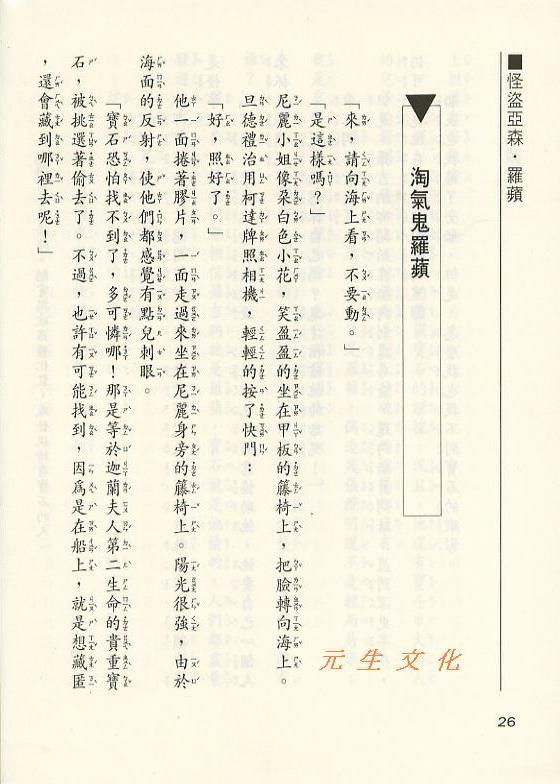 ■怪盜亞森・羅蘋
▼ 淘氣鬼羅蘋
「來，請向海上看，不要動。」
「是這樣嗎？」
尼麗小姐像朵白色小花，笑盈盈的坐在甲板的籐椅上，把臉轉向海上。
旦德禮治用柯達牌照相機，輕輕的按了快門：
「好，照好了。」
他一面捲著膠片，一面走過來坐在尼麗身旁的籐椅上。陽光很強，由於
海面的反射，使他們都感覺有點兒刺眼。
「寶石恐怕找不到了，多可憐哪！那是等於迦蘭夫人第二生命的貴重寶
石，被挑選著偷去了。不過，也許有可能找到，因為是在船上，就是想藏匿
，還會藏到哪裡去呢！」
元生文化
26